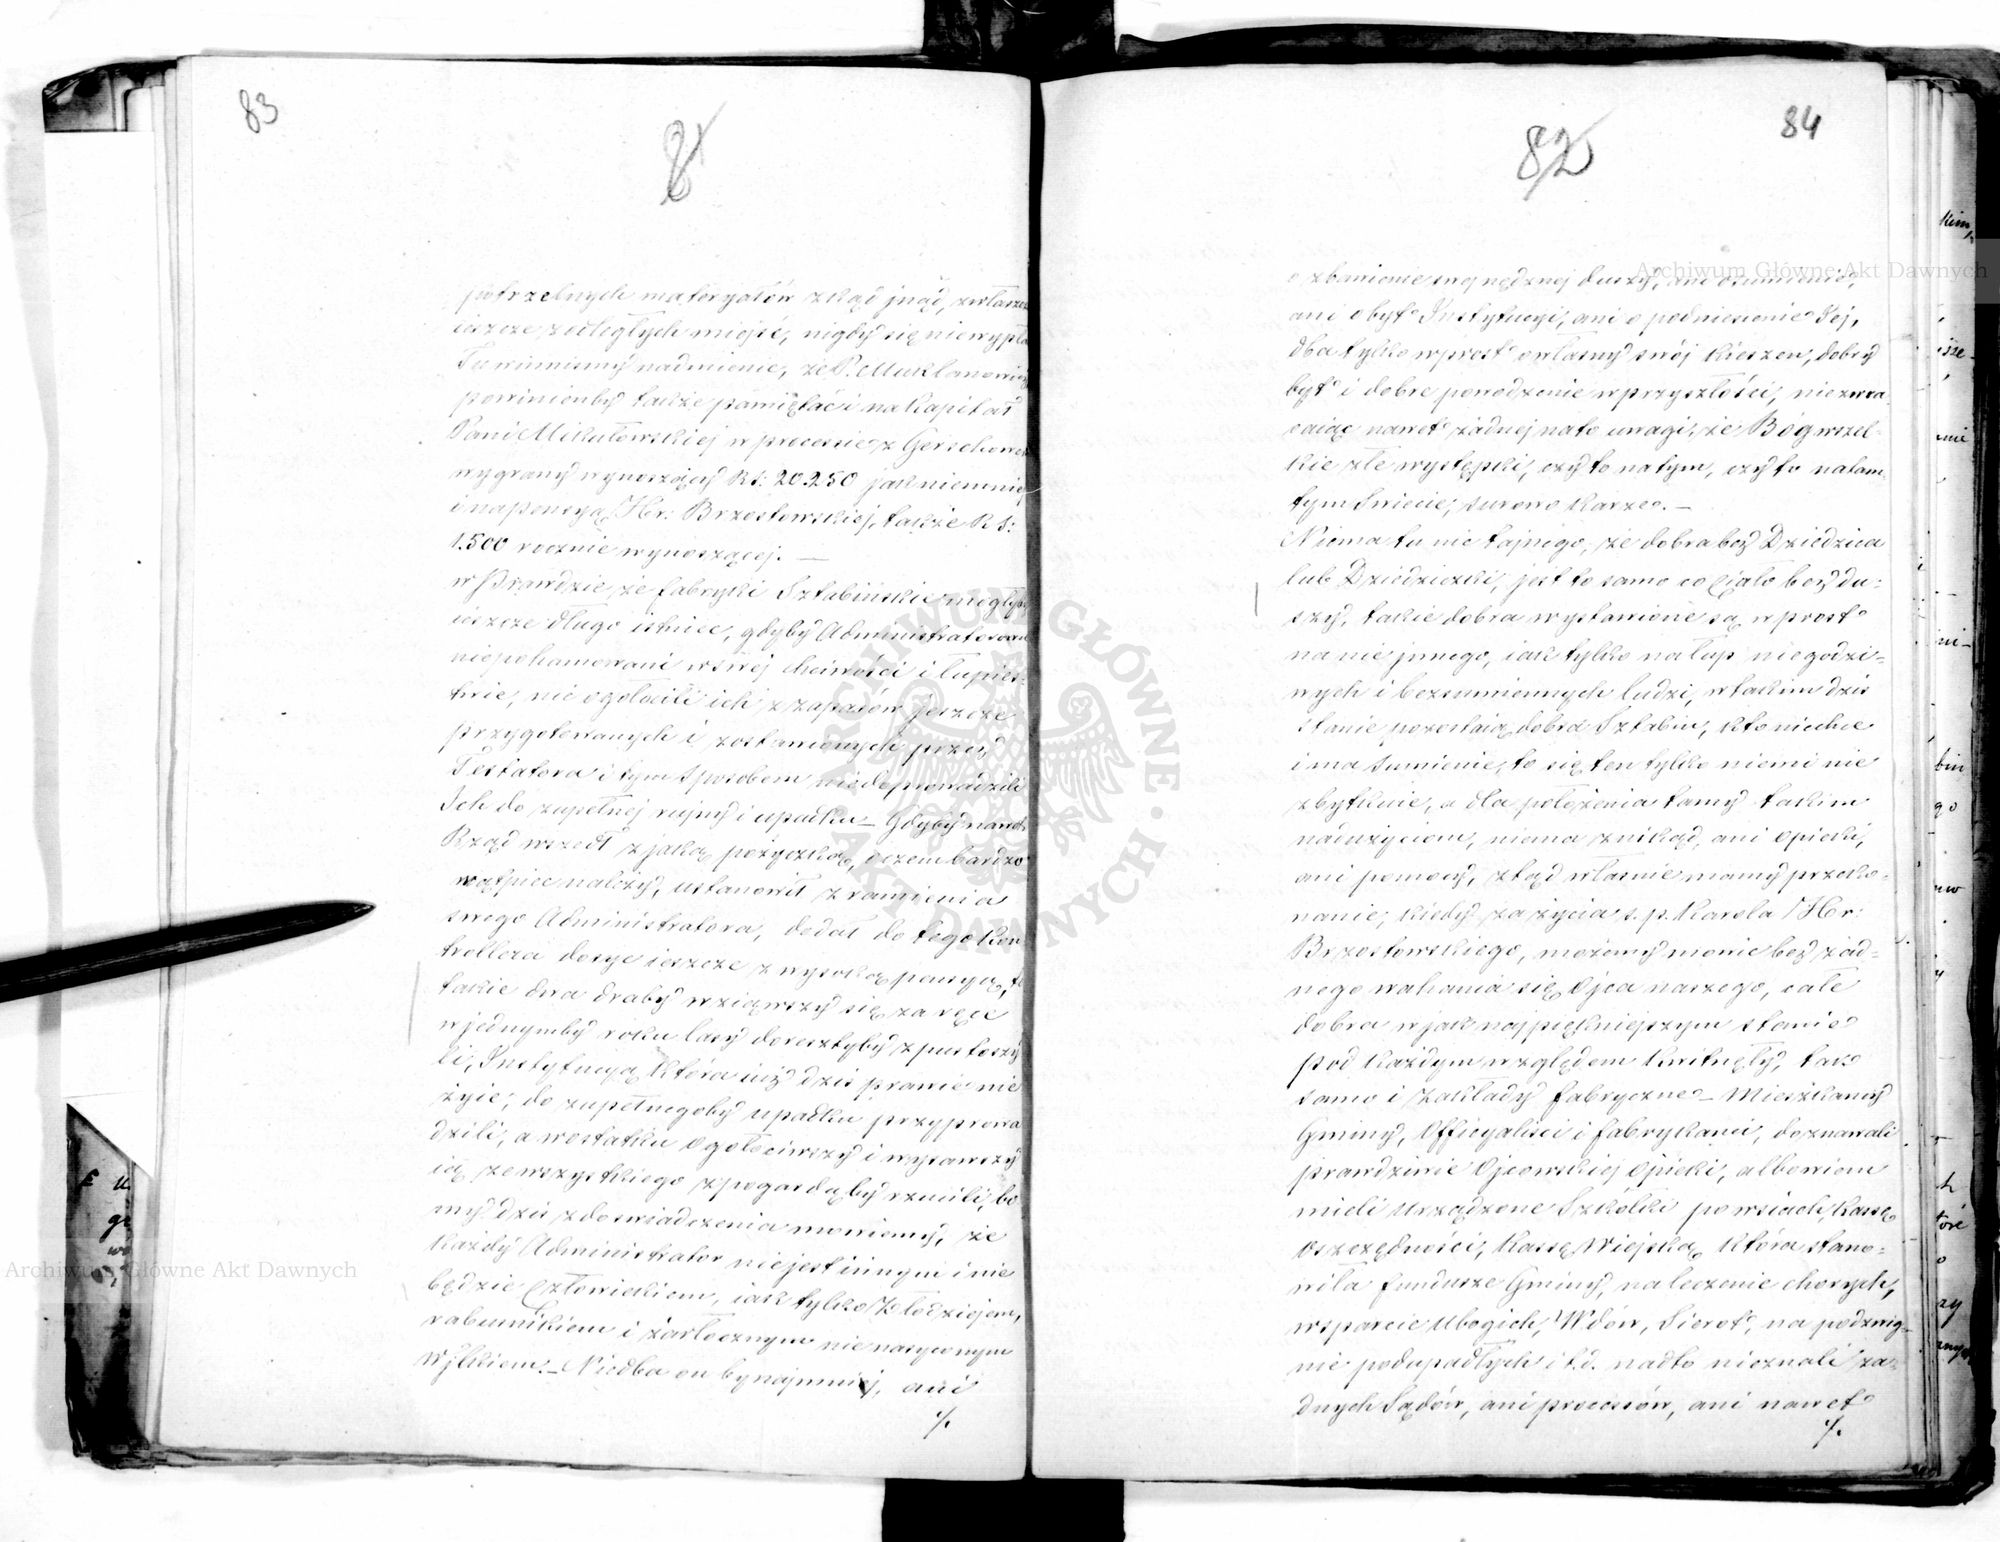 83
81
potrzebnych materyałów zkąd jnąd, zwłaszcza
ieszcze z odległych mieysć, nigdy się niewypła
Tu winnismy nadmienic, że P.
powinienby także pamiętać i na Kapitał
Pani Mikułowskiej w processie z
wygrany wynoszący RS: 20.250 jak niemniej
i na pensyą Hr: Brzostowskiej, także R S:
1.500 rocznie wynoszącej. —
w Prawdzie, że fabryki Sztabińskie mogłyby
ieszcze długo istniec, gdyby Administratorowie
niepohamowani w swej chciwości i łupies-
twie, nie ogołocili ich z zapasów jeszcze
przygotowanych i zostawionych przez
Testatora i tym sposobem niedoprowadzili
Ich do zupełnej rujny i upadku — Gdyby nawet
Rząd wszedł z jaką pożyczką, o czem bardzo
wątpic należy, ustanowił z ramienia
swego Administratora, dodał do tego Kon
trollera dosyc ieszcze z wysoką pensyą, to
takie dwa draby wziąwszy się za ręce
w jednymby roku lasy doresztyby spustoszy
li, Instytucyą która iuż dzis prawie nie
żyie, do zupełnegoby upadku przyprowa
dzili, a w ostatku ogołociwszy i wyssawszy
ią ze wszystkiego z pogardąby rzucili, bo
my dzis z doswiadczenia mowiemy, że
Każdy Administrator nie jest innym i nie
będzie Człowiekiem, iak tylko Złodziejem,
rabusnikiem i żarłocznym nie nasyconym
Wilkiem. — Niedba on bynajmniej, ani
./.
84
82
o zbawienie swej nędznej duszy, ani o sumienie,
ani o byt Instytucyi, ani o podniesienie Jej,
dba tylko wprost o własny swój kieszen, dobry
byt i dobre powodzenie w przyszłości, niezwra-
caiąc nawet żadnej na to uwagi, że Bóg wszel-
kie złe występki, czy to na tym, czy to na tam-
tym Swiecie, surowo Karze. —
Niema tu nic tajnego, że dobra bez Dziedzica
lub Dziedziczki, jest to samo co Ciało bez du-
szy, takie dobra wystawione są wprost
na nic jnnego, iak tylko na łup niegodzi-
wych i bezsumiennych ludzi, w takim dzis
stanie pozostaią dobra Sztabin, kto niechce
i ma Sumienie, to się ten tylko niemi nie
zbytkuie, a dla położenia tamy takim
nadużyciom, niema znikąd, ani Opieki,
ani pomocy, ztąd własnie mamy przeko-
nanie, kiedy za życia s. p. Karola Hr:
Brzostowskiego, możemy mowic bez żad-
nego wahania się Ojca naszego, całe
dobra w jak najpiękniejszym stanie
pod każdym względem Kwitnęły, tak
samo i Zakłady fabryczne — Mieszkancy
Gminy, Officyalisci i fabrykanci, doznawali
prawdziwie Ojcowskiej Opieki, albowiem
mieli urządzone Szkółki po wsiach, Kassę
Oszczędności, Kassę Wiejską, która stano-
wiła fundusze Gminy, na leczenie chorych,
wsparcie Ubogich, Wdów, Sierot, na podzwig-
nie podupadłych i t.d. nadto nieznali ża-
dnych Sądów, ani processów, ani nawet
./.
Archiwum Główne Akt Dawnych
Archiwum Główne Akt Dawnych
ARCHIWUM GŁÓWNE AKT DAWNYCH